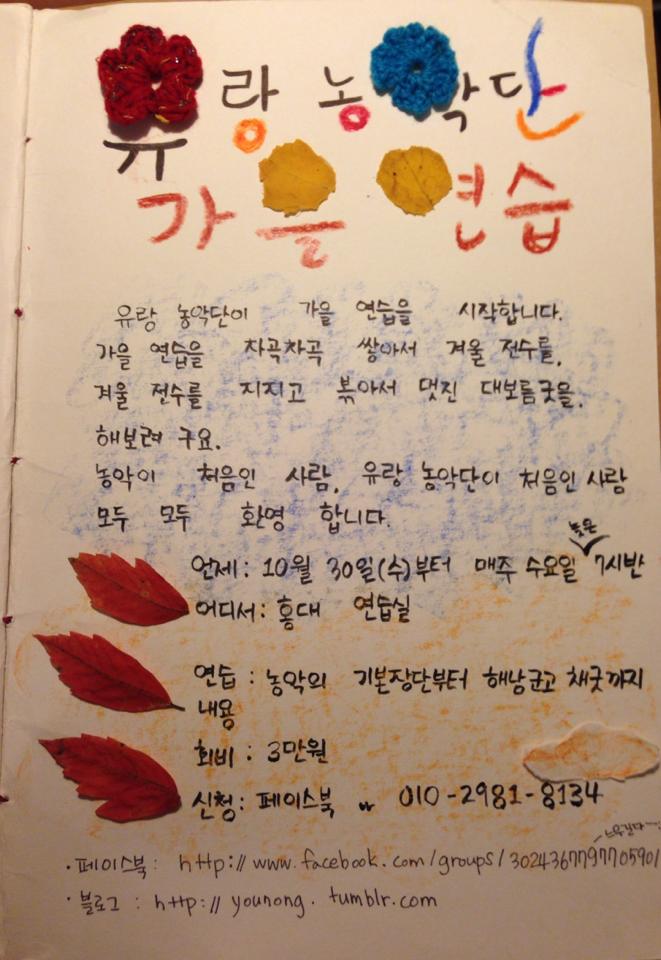 유랑 농악단
가을 연습
유랑 농악단이 가을 연습을 시작합니다.
가을 연습을 차곡차곡 쌓아서 겨울 전수를,
겨울 전수를 지지고 볶아서 멋진 대보름굿을.
해보려 구요.
농악이 처음인 사람, 유랑 농악단이 처음인 사람
모두 모두 환영 합니다.
늦은
언제: 10월 30일(수)부터 매주 수요일 7시반
어디서: 홍대 연습실
연습 : 농악의 기본장단부터 해남군고 채굿까지
내용
회비 : 3만원
신청: 페이스북 010-2981-8134
· 페이스북: http://www.facebook.com/groups/302436779770590/
· 블로그 : http://younong.tumblr.com